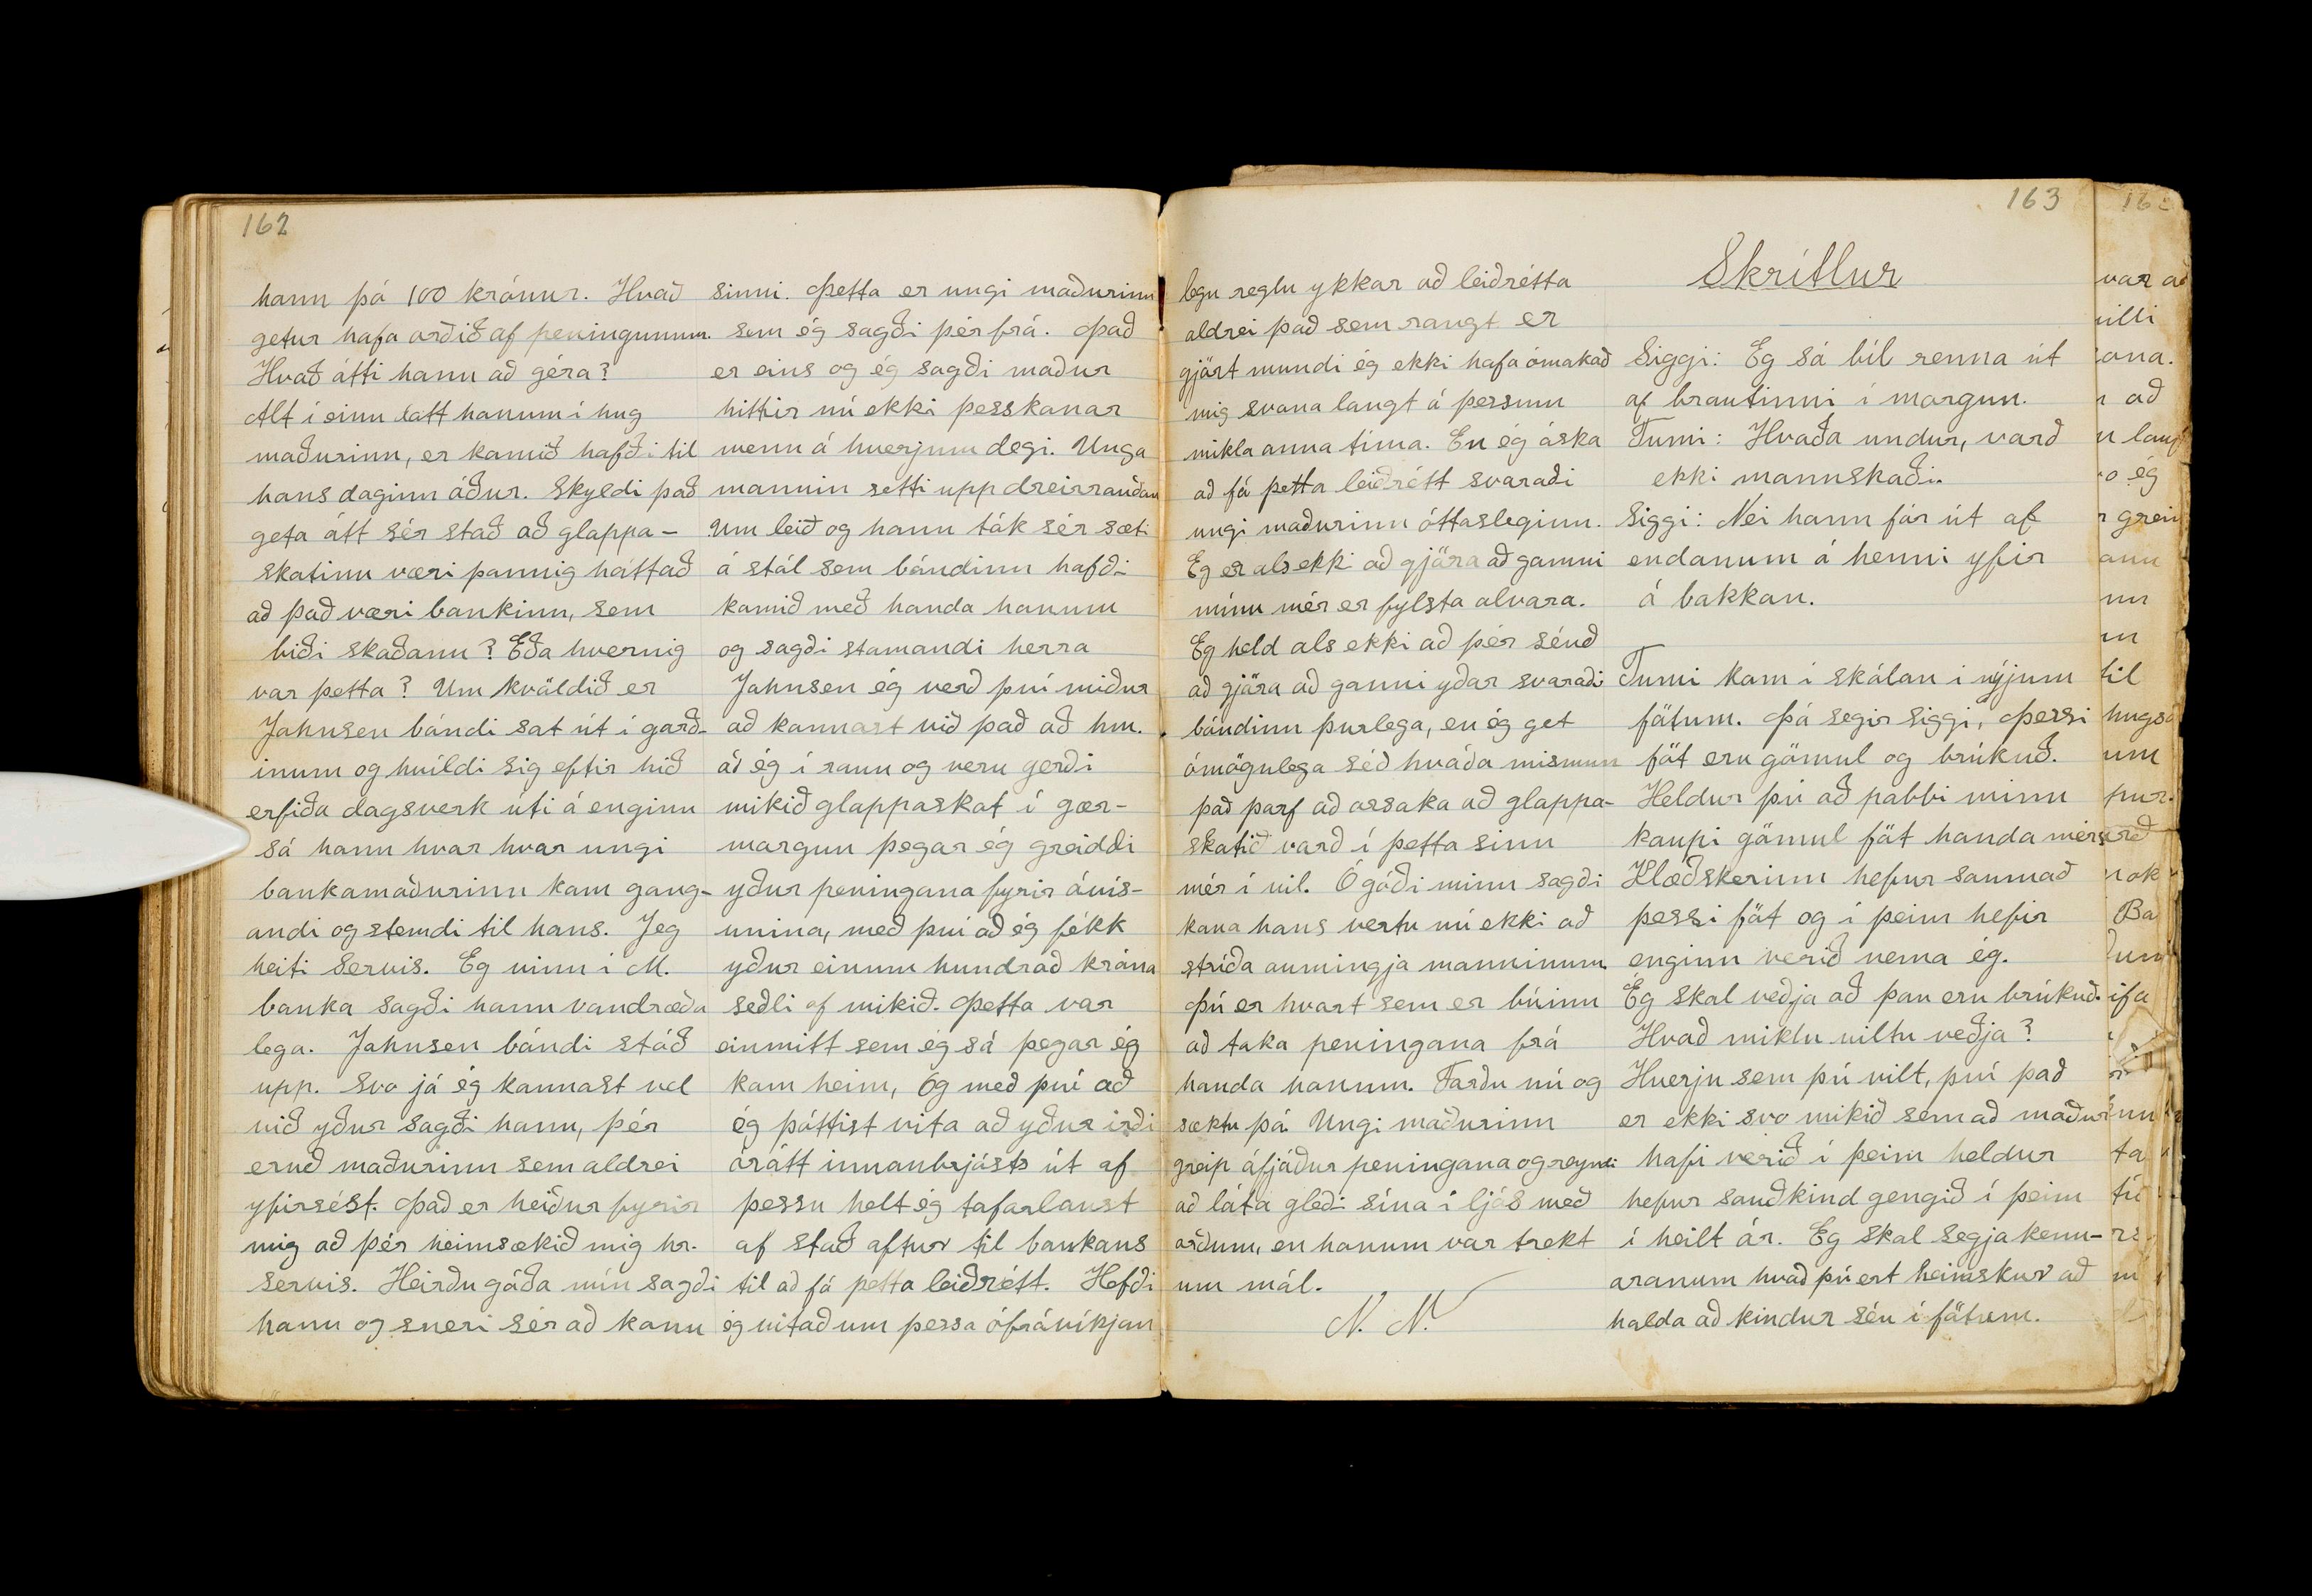 162
hann þá 100 krónur. Hvað
getur hafa orðið af peningunum.
Hvað átti hann að géra?
Alt í einu datt honum í hug
maðurinn, er komið hafði til
hans daginn áður. Skyldi það
geta átt sér stað að glappa-
skotinu væri þannig háttað
að það væri bankinn, sem
biði skaðann? Eða hvernig
var þetta? Um kvöldið er
Johnsen bóndi sat út í garð-
inum og hvíldi sig eftir hið
erfiða dagsverk úti á enginu
sá hann hvar hvar ungi
bankamaðurinn kom gang-
andi og stemdi til hans. Jeg
heiti Servis. Eg vinn í M.
banka sagði hann vandræða
lega. Johnsen bóndi stóð
upp. Svo já ég kannast vel
við yður sagði hann, þér
eruð maðurinn sem aldrei
yfirsést. Það er heiður fyrir
mig að þér heimsækið mig hr.
Servis. Heirðu góða mín sagði
hann og sneri sér að konu
sinni. Þetta er ungi maðurinn
sem ég sagði þér frá. Það
er eins og ég sagði maður
hittir nú ekki þesskonar
menn á hverjum degi. Unga
mannin setti upp dreirrauðan
Um leið og hann tók sér sæti
á stól sem bóndinn hafði
komið með handa honum
og sagði stamandi herra
Johnsen ég verð því miður
að kannast við það að hm.
að ég í raun og veru gerði
mikið glappaskot í gær-
morgun þegar ég greiddi
yður peningana fyrir ávís-
unina, með því að ég fékk
yður einum hundrað króna
seðli of mikið. Þetta var
einmitt sem ég sá þegar ég
kom heim, Og með því að
ég þóttist vita að yður irði
órótt innanbrjósts út af
þessu helt ég tafarlaust
af stað aftur til bankans
til að fá þetta leiðrétt. Hefði
ég vitað um þessa ófrávíkjan
163
legu reglu ykkar að leiðrétta
aldrei það sem rangt er
gjört mundi ég ekki hafa ómakað
mig svona langt á þessum
mikla anna tíma. En ég óska
að fá þetta leiðrétt svaraði
ungi maðurinn óttasleginn.
Eg er als ekki að gjöra að gamni
mínu mér er fylsta alvara.
Eg held als ekki að þér séuð
að gjöra að ganni yðar svaraði
bóndinn þurlega, en ég get
ómögulega séð hvaða mismun
það þarf að orsaka að glappa-
skotið varð í þetta sinn
mér í vil. Ó góði minn sagði
kona hans vertu nú ekki að
stríða aumingja manninum.
Þú er hvort sem er búinn
að taka peningana frá
handa honum. Farðu nú og
sæktu þá. Ungi maðurinn
greip áfjáður peningana og reyndi
að láta gleði sína í ljós með
orðum, en honum var trekt
um mál.
N. N.
Skrítlur
Siggi: Eg sá bíl renna út
af brautinni í morgun.
Tumi: Hvaða undur, varð
ekki mannskaði.
Siggi: Nei hann fór út af
endanum á henni yfir
á bakkan.
Tumi kom í skólan í nýjum
fötum. Þá segir Siggi, Þessi
föt eru gömul og brúkuð.
Heldur þú að pabbi minn
kaupi gömul föt handa mér
Klæðskerinn hefur saumað
þessi föt og í þeim hefir
enginn verið nema ég.
Ég skal veðja að þau eru brúkuð.
Hvað miklu viltu veðja?
Hverju sem þú vilt, því það
er ekki svo mikið sem að maður
hafi verið í þeim heldur
hefur sauðkind gengið í þeim
í heilt ár. Eg skal segja kenn-
aranum hvað þú ert heimskur að
halda að kindur séu í fötum.